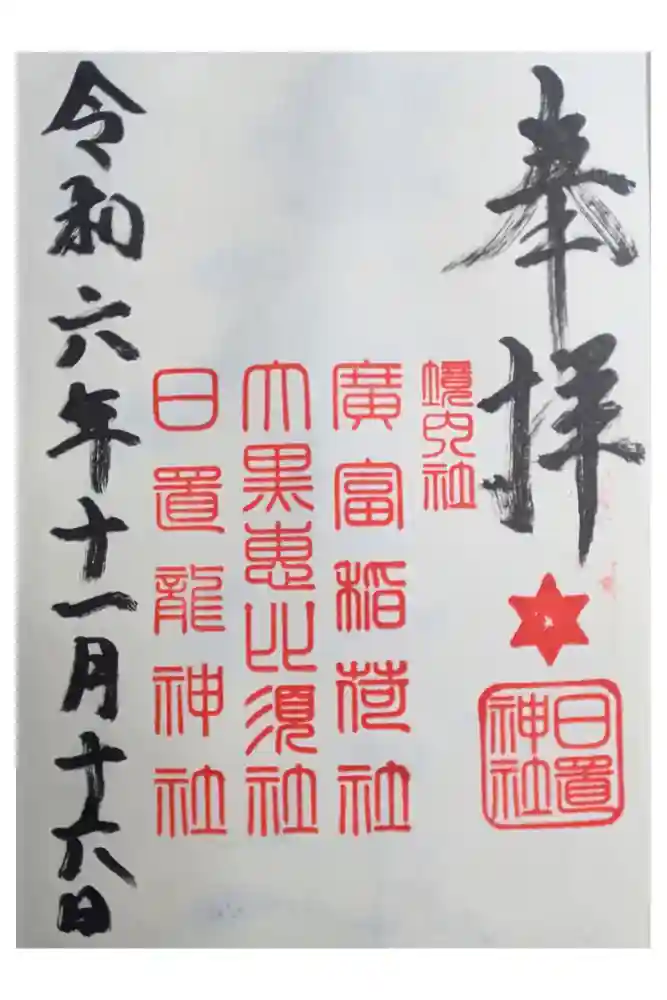 奉拝
日置神社
境内社
廣富稲荷社
大黒恵比須社
日置龍神社
令和六年十一月十六日